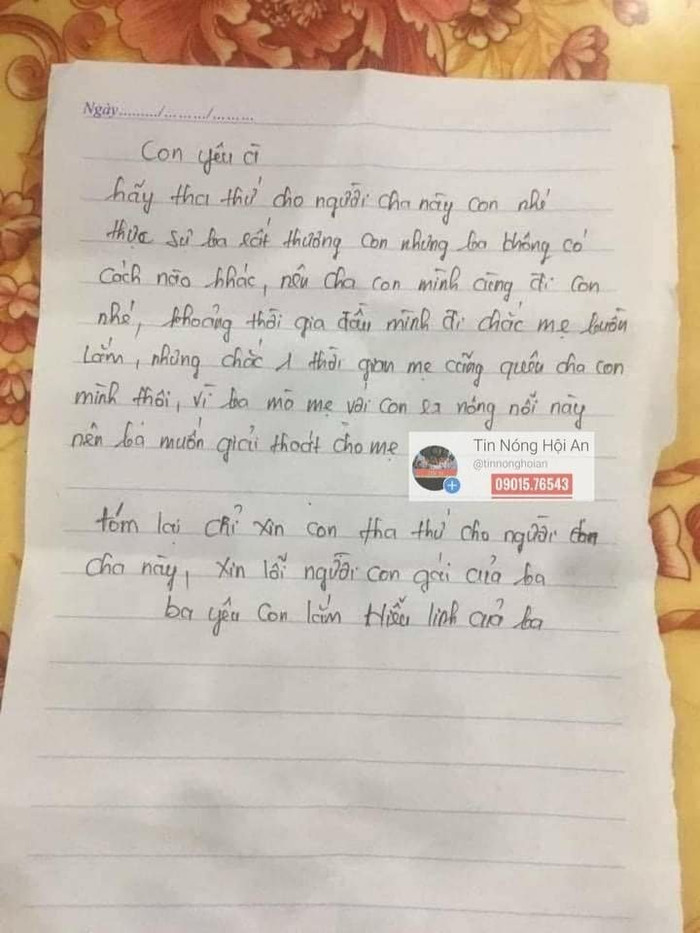 Ngày......../........./.........
Con yêu à
hãy tha thứ cho người cha này con nhé
thực sự ba rất thương con nhưng ba không có
cách nào khác, nên cha con mình cùng đi con
nhé, khoảng thời gia đầu mình đi chắc mẹ buồn
lắm, nhưng chắc 1 thời gian mẹ cũng quên cha con
mình thôi, vì ba mò mẹ với con ra nông nỗi này
nên ba muốn giải thoát cho mẹ
Tin Nóng Hội An
@tinnonghoian
09015.76543
tóm lại chỉ xin con tha thứ cho người
cha này, xin lỗi người con gái của ba
ba yêu con lắm Hiếu linh của ba